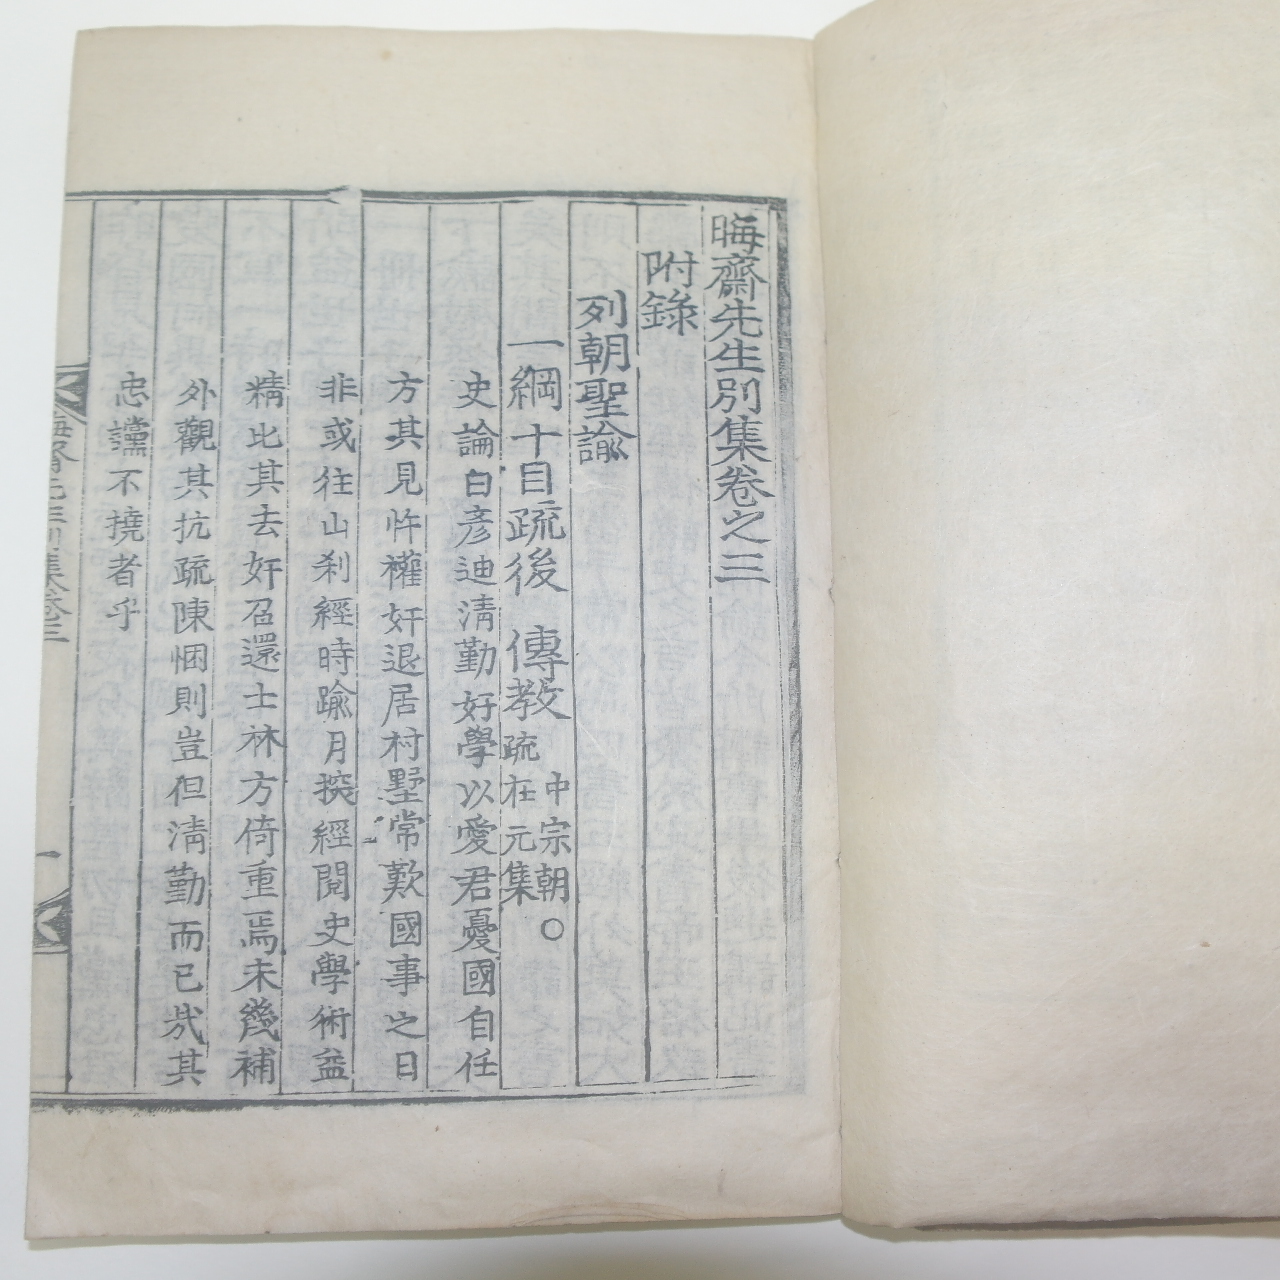 晦齋先生別集卷之三
附錄
列朝聖諭
一綱十目疏後 傳教 中宗朝○疏在元集
史論曰彥迪淸勤好學以愛君憂國自任
方其見忤權奸退居村墅常歎國事之日
非或往山刹經時踰月探經閱史學術益
精比其去奸召還士林方倚重焉未幾補
外觀其抗疏陳悃則豈但淸勤而已哉其
忠讜不撓者乎
晦齋先生別集卷三
一